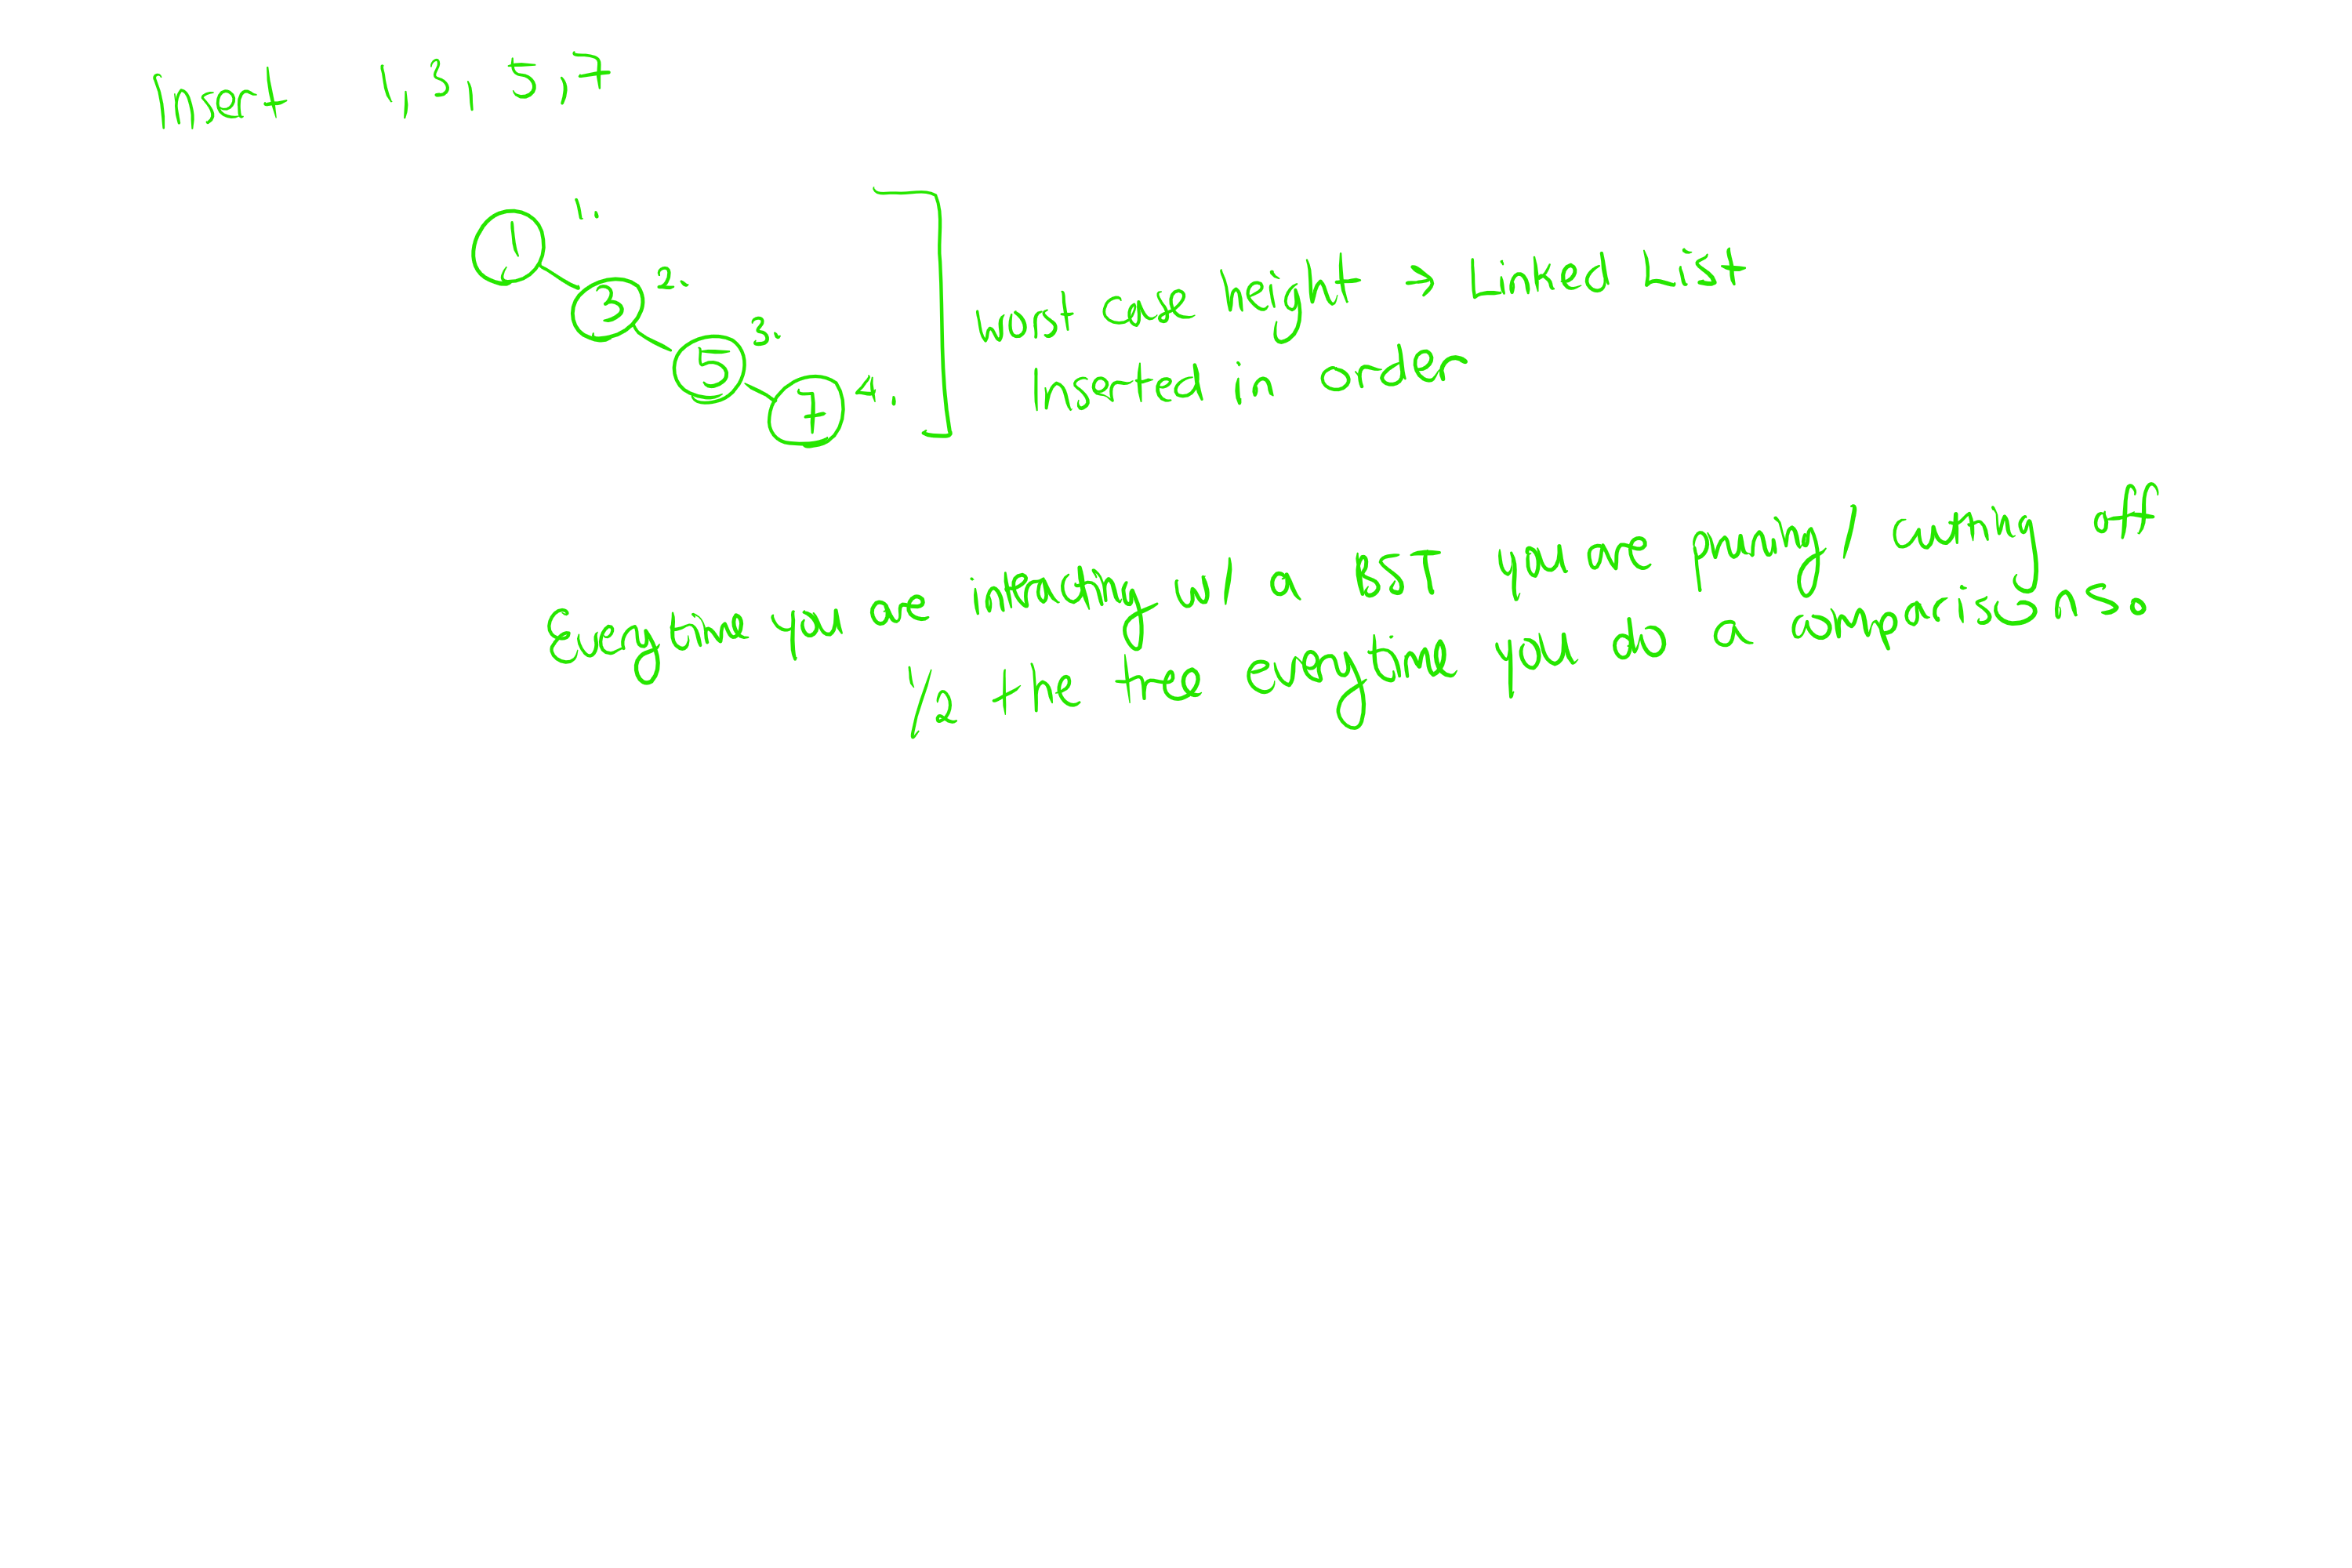 Insert 1, 3, 5, 7
1 1.
3 2.
5 3.
7 4.
worst case height → Linked List
inserted in order
Every time you are interacting w/ a BST you are
cutting off
1/2 the tree every time you do a comparison so